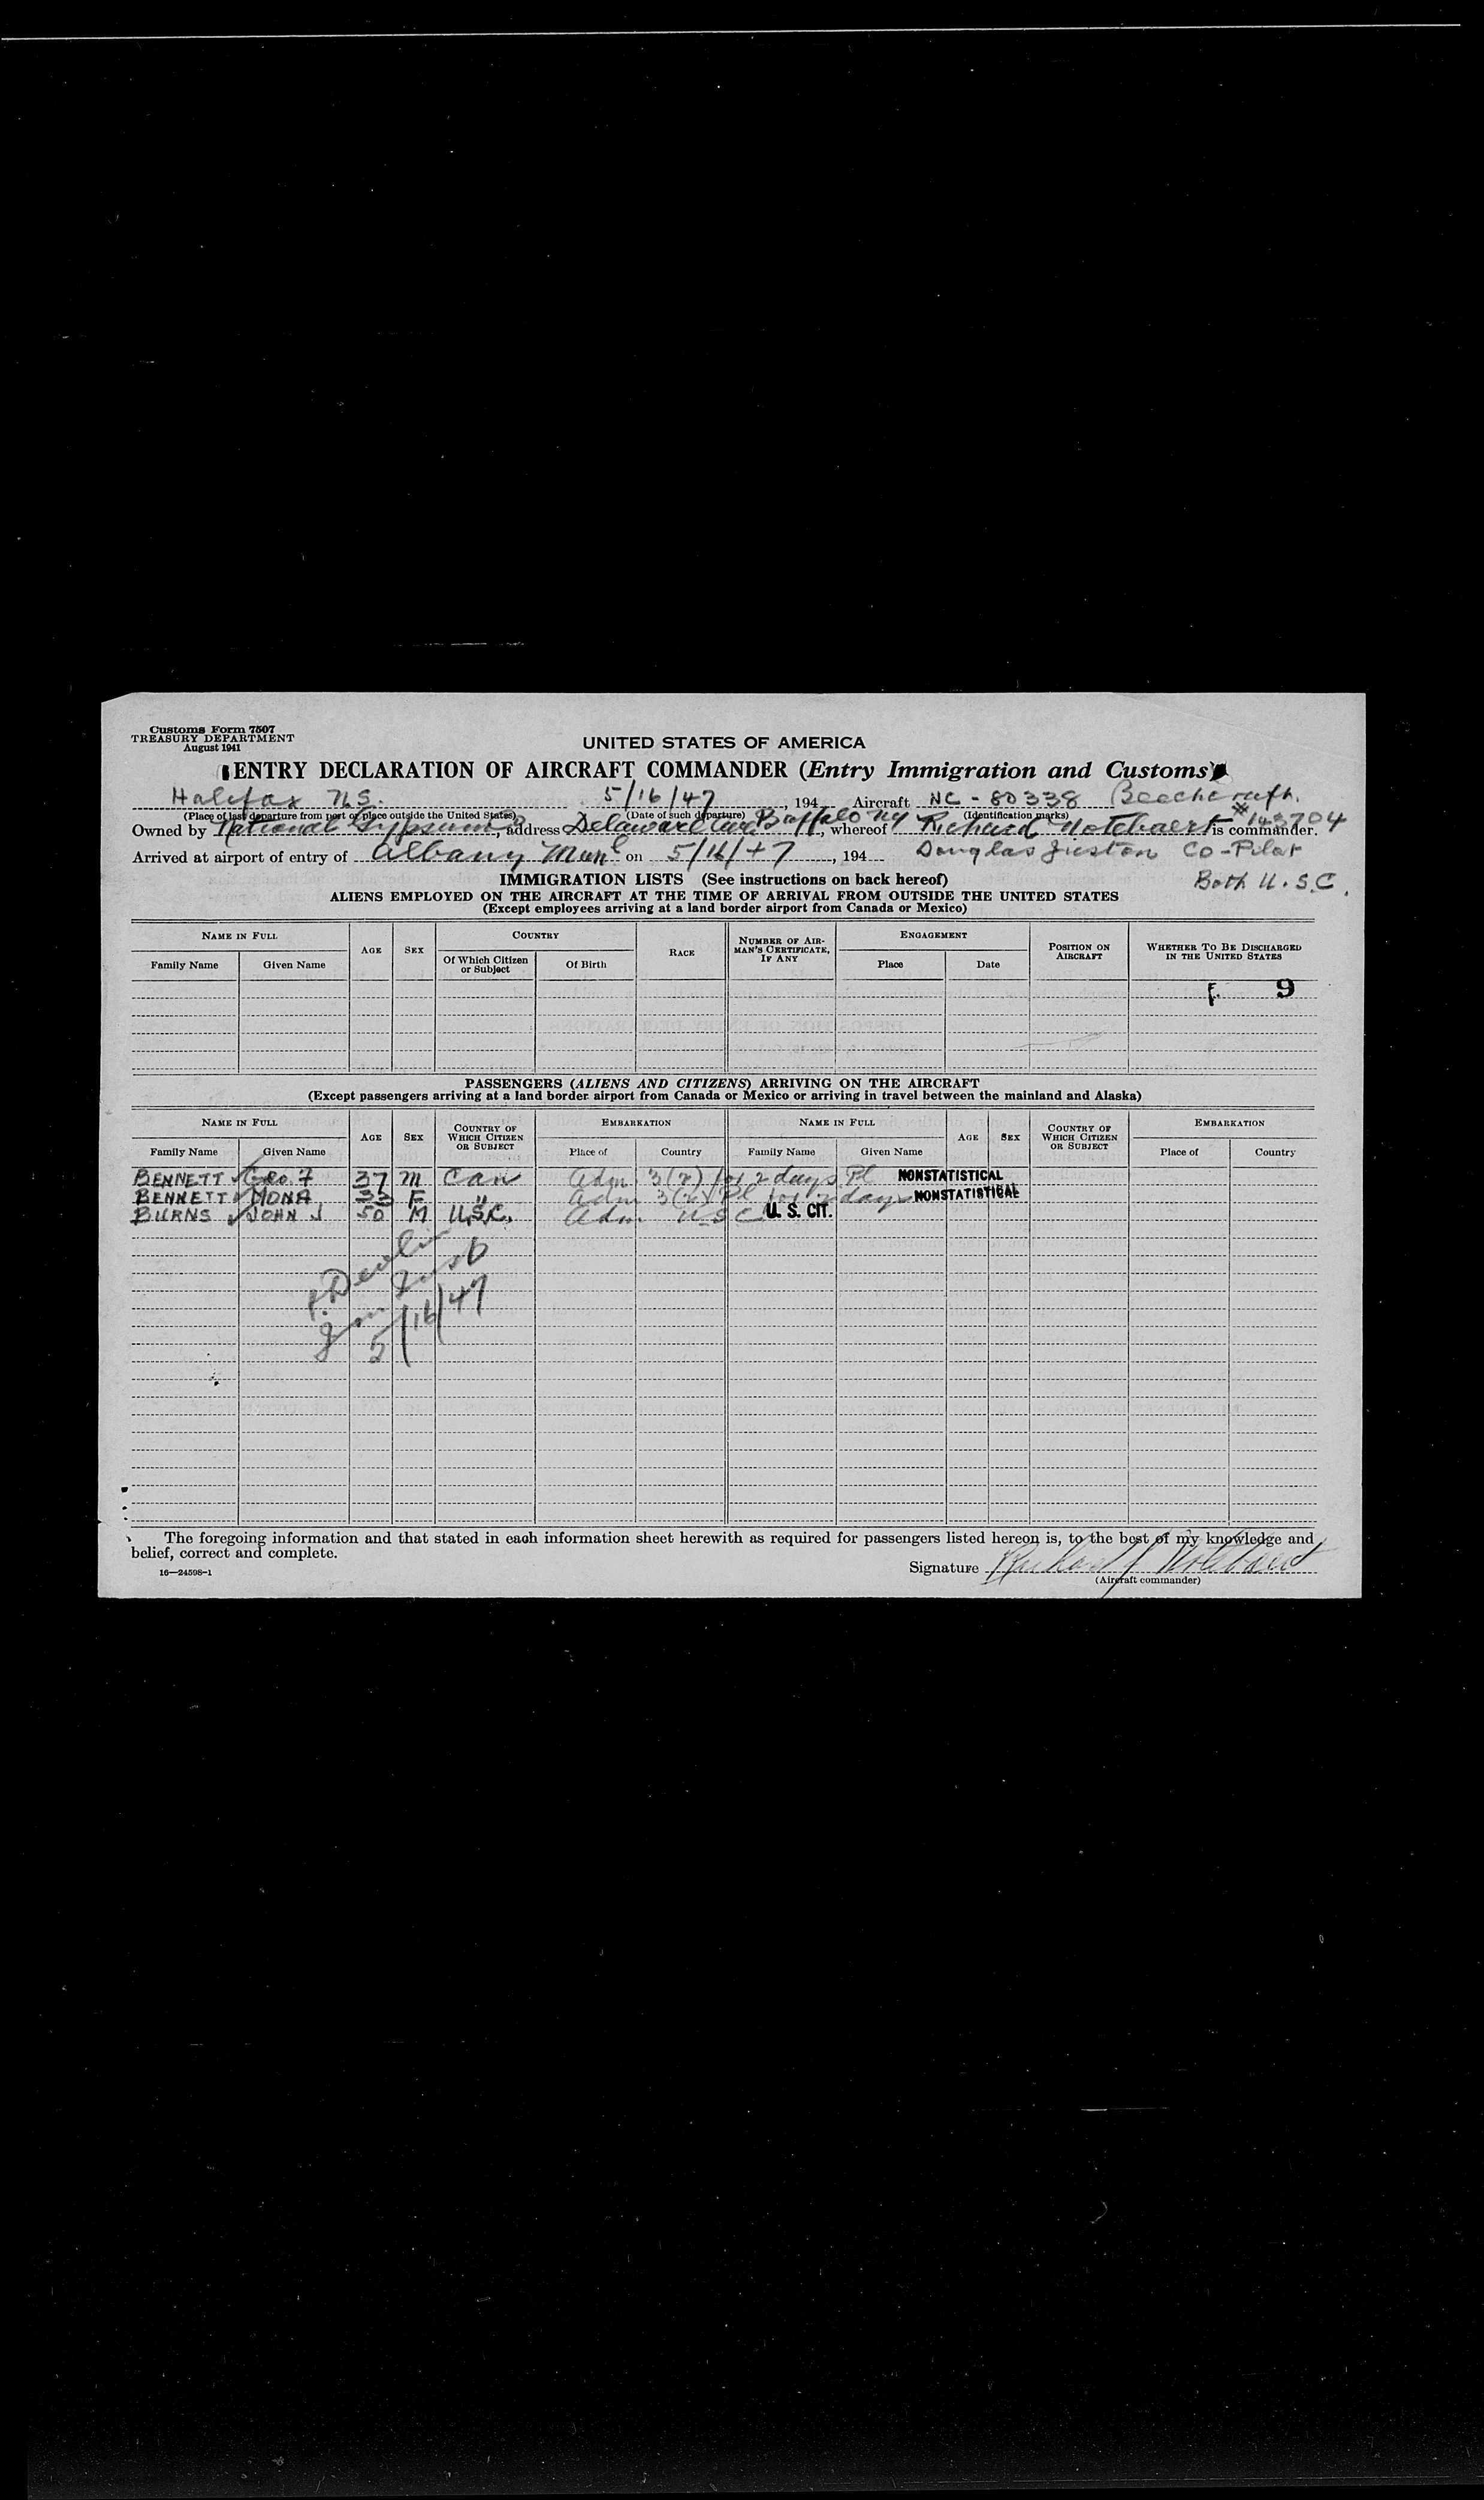 Customs Form 7507
TREASURY DEPARTMENT
August 1941
UNITED STATES OF AMERICA
ENTRY DECLARATION OF AIRCRAFT COMMANDER (Entry Immigration and Customs)
Halifax N.S. 5/16/47, 194 Aircraft NC-80338 Beechcraft.
(Place of last departure from port or place outside the United States) (Date of such departure) (Identification marks) #143704
Owned by National Gypsum, address Delaware Ave Buffalo NY, whereof Richard is commander.
Arrived at airport of entry of Albany Muni on 5/16/47, 194 Douglas Co-Pilot
IMMIGRATION LISTS (See instructions on back hereof) Both U.S.C.
ALIENS EMPLOYED ON THE AIRCRAFT AT THE TIME OF ARRIVAL FROM OUTSIDE THE UNITED STATES
(Except employees arriving at a land border airport from Canada or Mexico)
NAME IN FULL AGE SEX COUNTRY RACE NUMBER OF AIRMAN'S CERTIFICATE, IF ANY ENGAGEMENT POSITION ON AIRCRAFT WHETHER TO BE DISCHARGED IN THE UNITED STATES
Family Name Given Name Of Which Citizen or Subject Of Birth Place Date
9
PASSENGERS (ALIENS AND CITIZENS) ARRIVING ON THE AIRCRAFT
(Except passengers arriving at a land border airport from Canada or Mexico or arriving in travel between the mainland and Alaska)
NAME IN FULL AGE SEX COUNTRY OF WHICH CITIZEN OR SUBJECT EMBARKATION NAME IN FULL AGE SEX COUNTRY OF WHICH CITIZEN OR SUBJECT EMBARKATION
Family Name Given Name Place of Country Family Name Given Name Place of Country
BENNETT Geo. F 37 M Can Adm 3(2) for 2 days Pl NONSTATISTICAL
BENNETT MONA 33 F " Adm 3(2) Pl for 2 days NONSTATISTICAL
BURNS JOHN J 50 M U.S.C. Adm USC U. S. CIT.
Devlin
5/16/47
The foregoing information and that stated in each information sheet herewith as required for passengers listed hereon is, to the best of my knowledge and
belief, correct and complete.
Signature Richard
16—24598-1 (Aircraft commander)